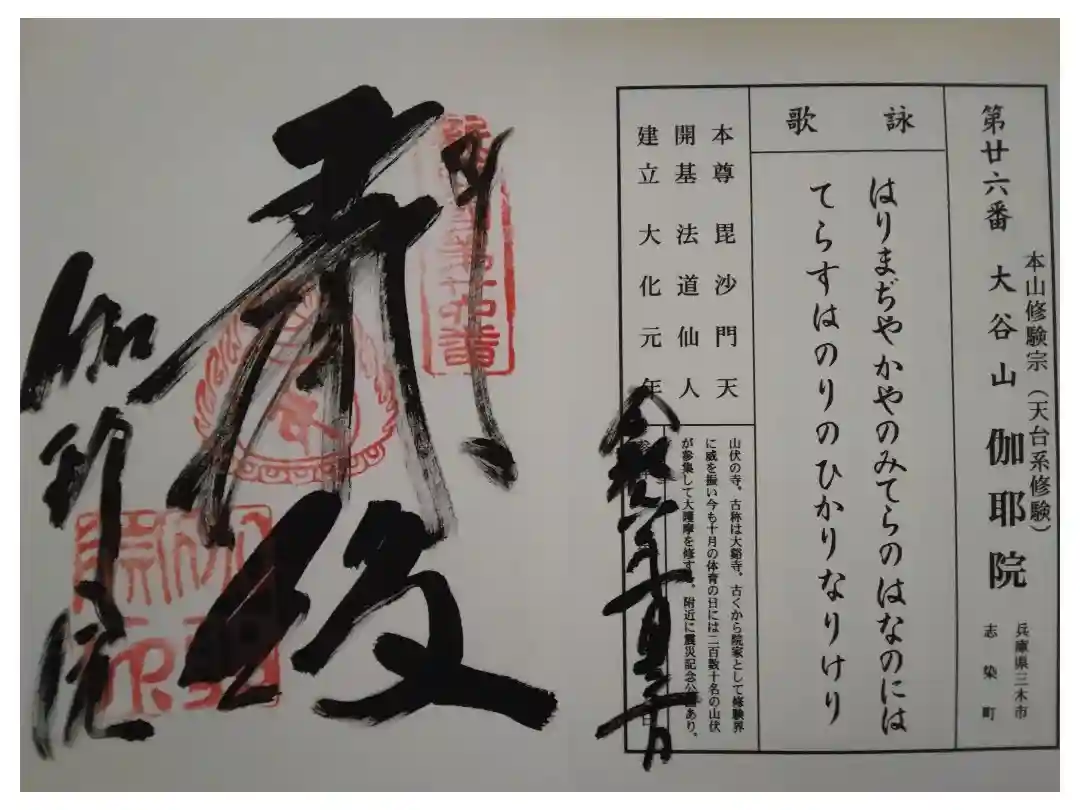 第廿六番 大谷山 伽耶院
本山修験宗（天台系修験）
兵庫県三木市
志染町
詠歌
はりまぢやかやのみてらのはなのには
てらすはのりのひかりなりけり
本尊 毘沙門天
開基 法道仙人
建立 大化元年
山伏の寺。古称は大谿寺。古くから院家として修験界
に威を振い今も十月の体育の日には二百数十名の山伏
が参集して大護摩を修す。附近に震災記念公園あり。
伽耶院